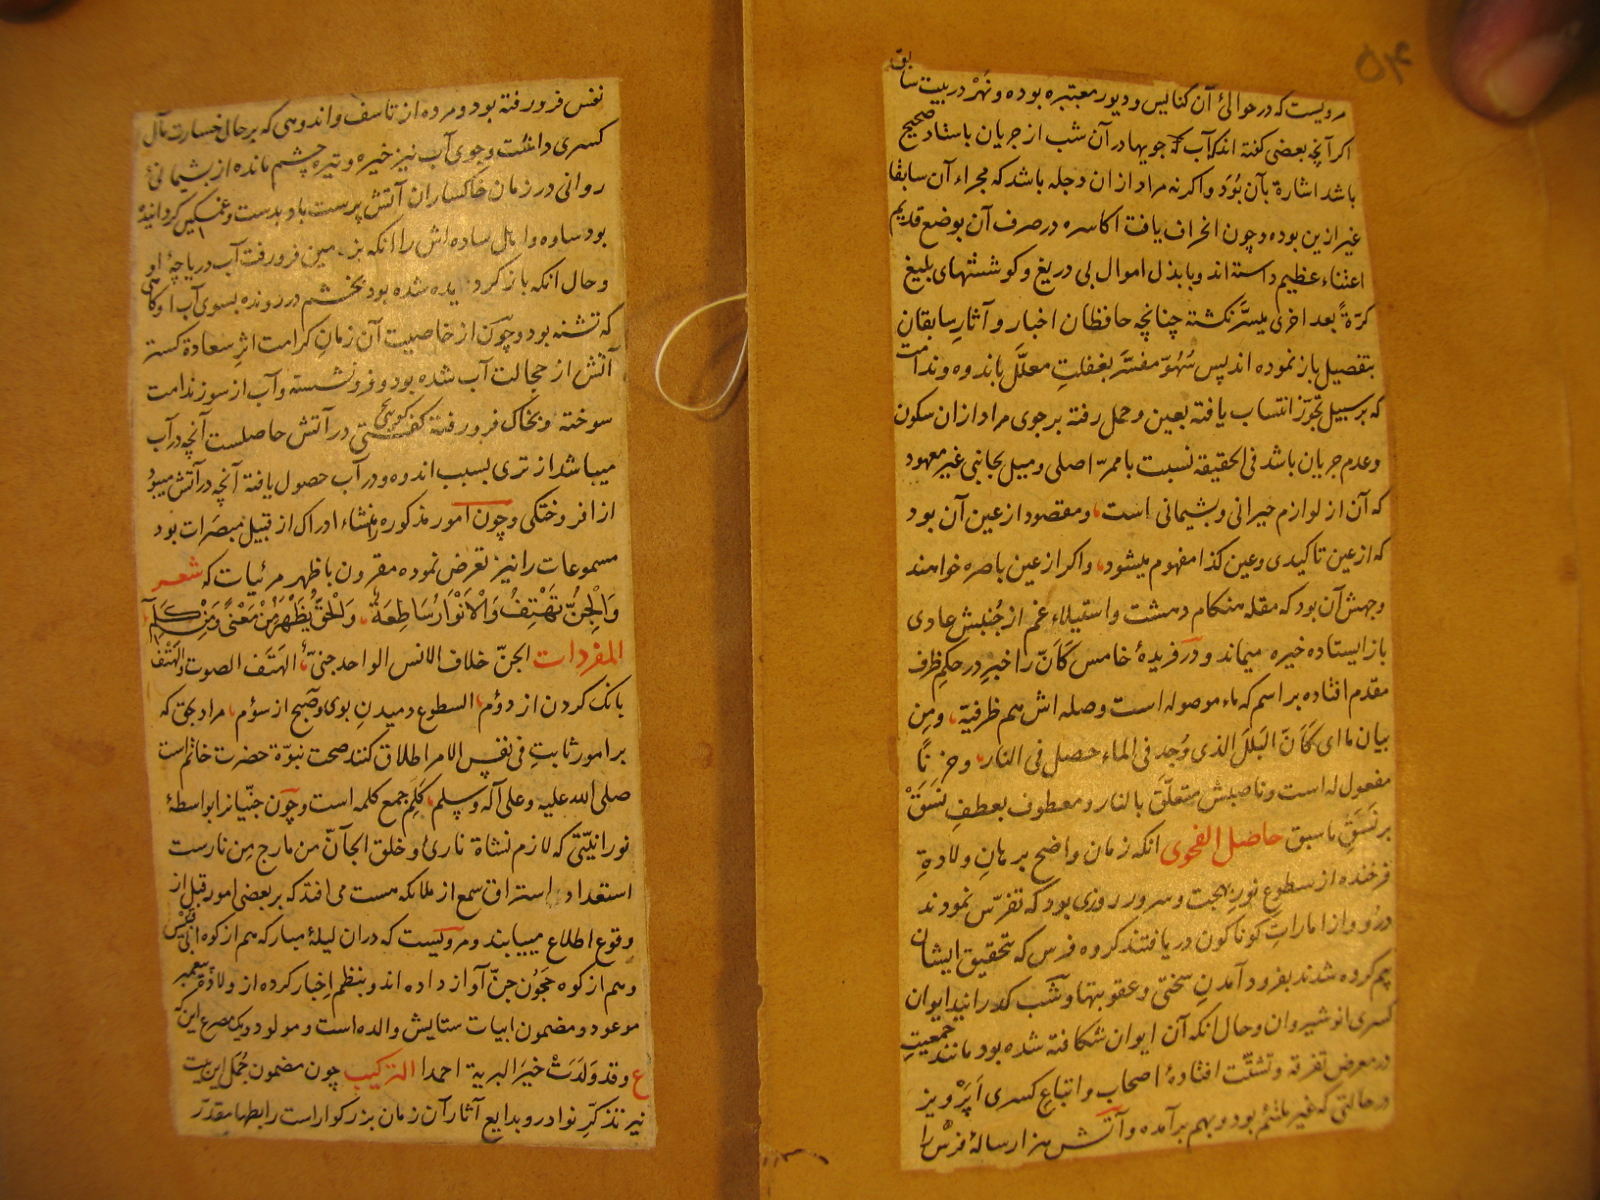 ۵۴
مرویست که در حوالئ آن کنائس و دیور معتبره بوده و نهر در بیت سابق
اکر آنچه بعضی کفته اند که آب جویها در آن شب از جریان باستاد صحیح
باشد اشارة بآن بود واکرنه مراد از ان دجله باشد که مجراء آن سابقا
غیر ازین بوده و چون انحراف یافت اکاسره در صرف آن بوضع قدیم
اعتناء عظیم داسته اند و با بذل اموال بی دریغ و کوششهای بلیغ
کرة بعد اخری میسر نکشته چنانچه حافظان اخبار و آثار سابقان
بتفصیل باز نموده اند پس سهو مفسر بغفلت معلل باندوه وندامت
که بر سبیل تجوز انتساب یافته بعین و حمل رفته بر جوی مراد ازان سکون
وعدم جریان باشد فی الحقیقه نسبت با ممر اصلی و میل بجانبی غیر معهود
که آن از لوازم حیرانی و پشیمانی است، ومقصود از عین آن بود
که از عین تاکیدی وعین کذا مفهوم میشود، واکر از عین باصره خواهند
وجهش آن بود که مقله هنکام دهشت واستیلاء غم از جنبش عادی
باز ایستاده خیره میماند و در فریدۀ خامس کأن را خبر در حکم ظرف
مقدم افتاده بر اسم که ماء موصوله است وصله اش هم ظرفیة، ومن
بیان ما ای کأن البلل الذی وجد فی الماء حصل فی النار، وحزنا
مفعول له است وناصبش متعلق بالنار ومعطوف بعطف نسق
بر نسق ما سبق حاصل الفحوی انکه زمان واضح برهان ولادة
فرخنده از سطوع نور بهجت و سرور روزی بود که تفرس نمودند
درو واز امارات کوناکون دریافتند کروه فرس که بتحقیق ایشان
بیم کرده شدند بفرود آمدن سختی وعقوبتها وشب کذرانید ایوان
کسری انوشیروان وحال انکه آن ایوان شکافته شده بود مانند جمعیت
در معرض تفرقه وتشتت افتادۀ اصحاب واتباع کسری اپرویز
در حالتی که غیر ملتئم بود و بهم برآمده وآتش هزار سالۀ فرس را
نفس فرو رفته بود و مرده از تاسف واندوهی که بر حال خسارت مآل
کسری داشت وجوی آب نیز خیره و تیره چشم مانده از پشیمانئ
روانی در زمان خاکساران آتش پرست باد بدست وغمکین کردانیده
بود ساوه و اهل ساده اش را انکه بزمین فرو رفت آب دریاچۀ او
وحال انکه باز کردیده شده بود بخشم در رونده بسوی آب او کاهی
که تشنه بود و چون از خاصیت آن زمان کرامت اثر سعادة کستر
آتش از خجالت آب شده بود و فرو نشسته وآب از سوز ندامت
سوخته وبخاک فرو رفته کفتی کوئیا در آتش حاصلست آنچه در آب
میباشد از تری بسبب اندوه ودر آب حصول یافته آنچه در آتش میبود
از افروختکی وچون امور مذکوره را منشاء ادراک از قبیل مبصرات بود
مسموعات را نیز تعرض نموده مقرون باظهر مرئیات که شعر
والجن تهتف والانوار ساطعة، والحق یظهر من معنی ومن کلم
المفردات الجن خلاف الانس الواحد جنی، الهتف الصوت والهتف
بانک کردن از دوم، السطوع دمیدن بوی وصبح از سؤم، مراد بحق که
بر امور ثابت فی نفس الامر اطلاق کنند صحت نبوة حضرت خاتم است
صلی الله علیه وعلی آله وسلم، کلم جمع کلمه است وچون جنیانرا بواسطۀ
نورانیتی که لازم نشاة ناری و خلق الجآن من مارج من نارست
استعداد استراق سمع از ملائکه هست می افتد که بر بعضی امور قبل از
وقوع اطلاع مییابند ومرویست که دران لیلۀ مبارکه هم از کوه ابی قبیس
وهم از کوه حجون جن آواز داده اند وبنظم اخبار کرده از ولادة پیغمبر
موعود و مضمون ابیات ستایش والده است ومولود ویک مصرع این که
ع وقد ولدت خیر البریة احمدا الترکیب چون مضمون جمل این بیت
نیز تذکر نوادر و بدایع آثار آن زمان بزرکوار است رابطها مقدر